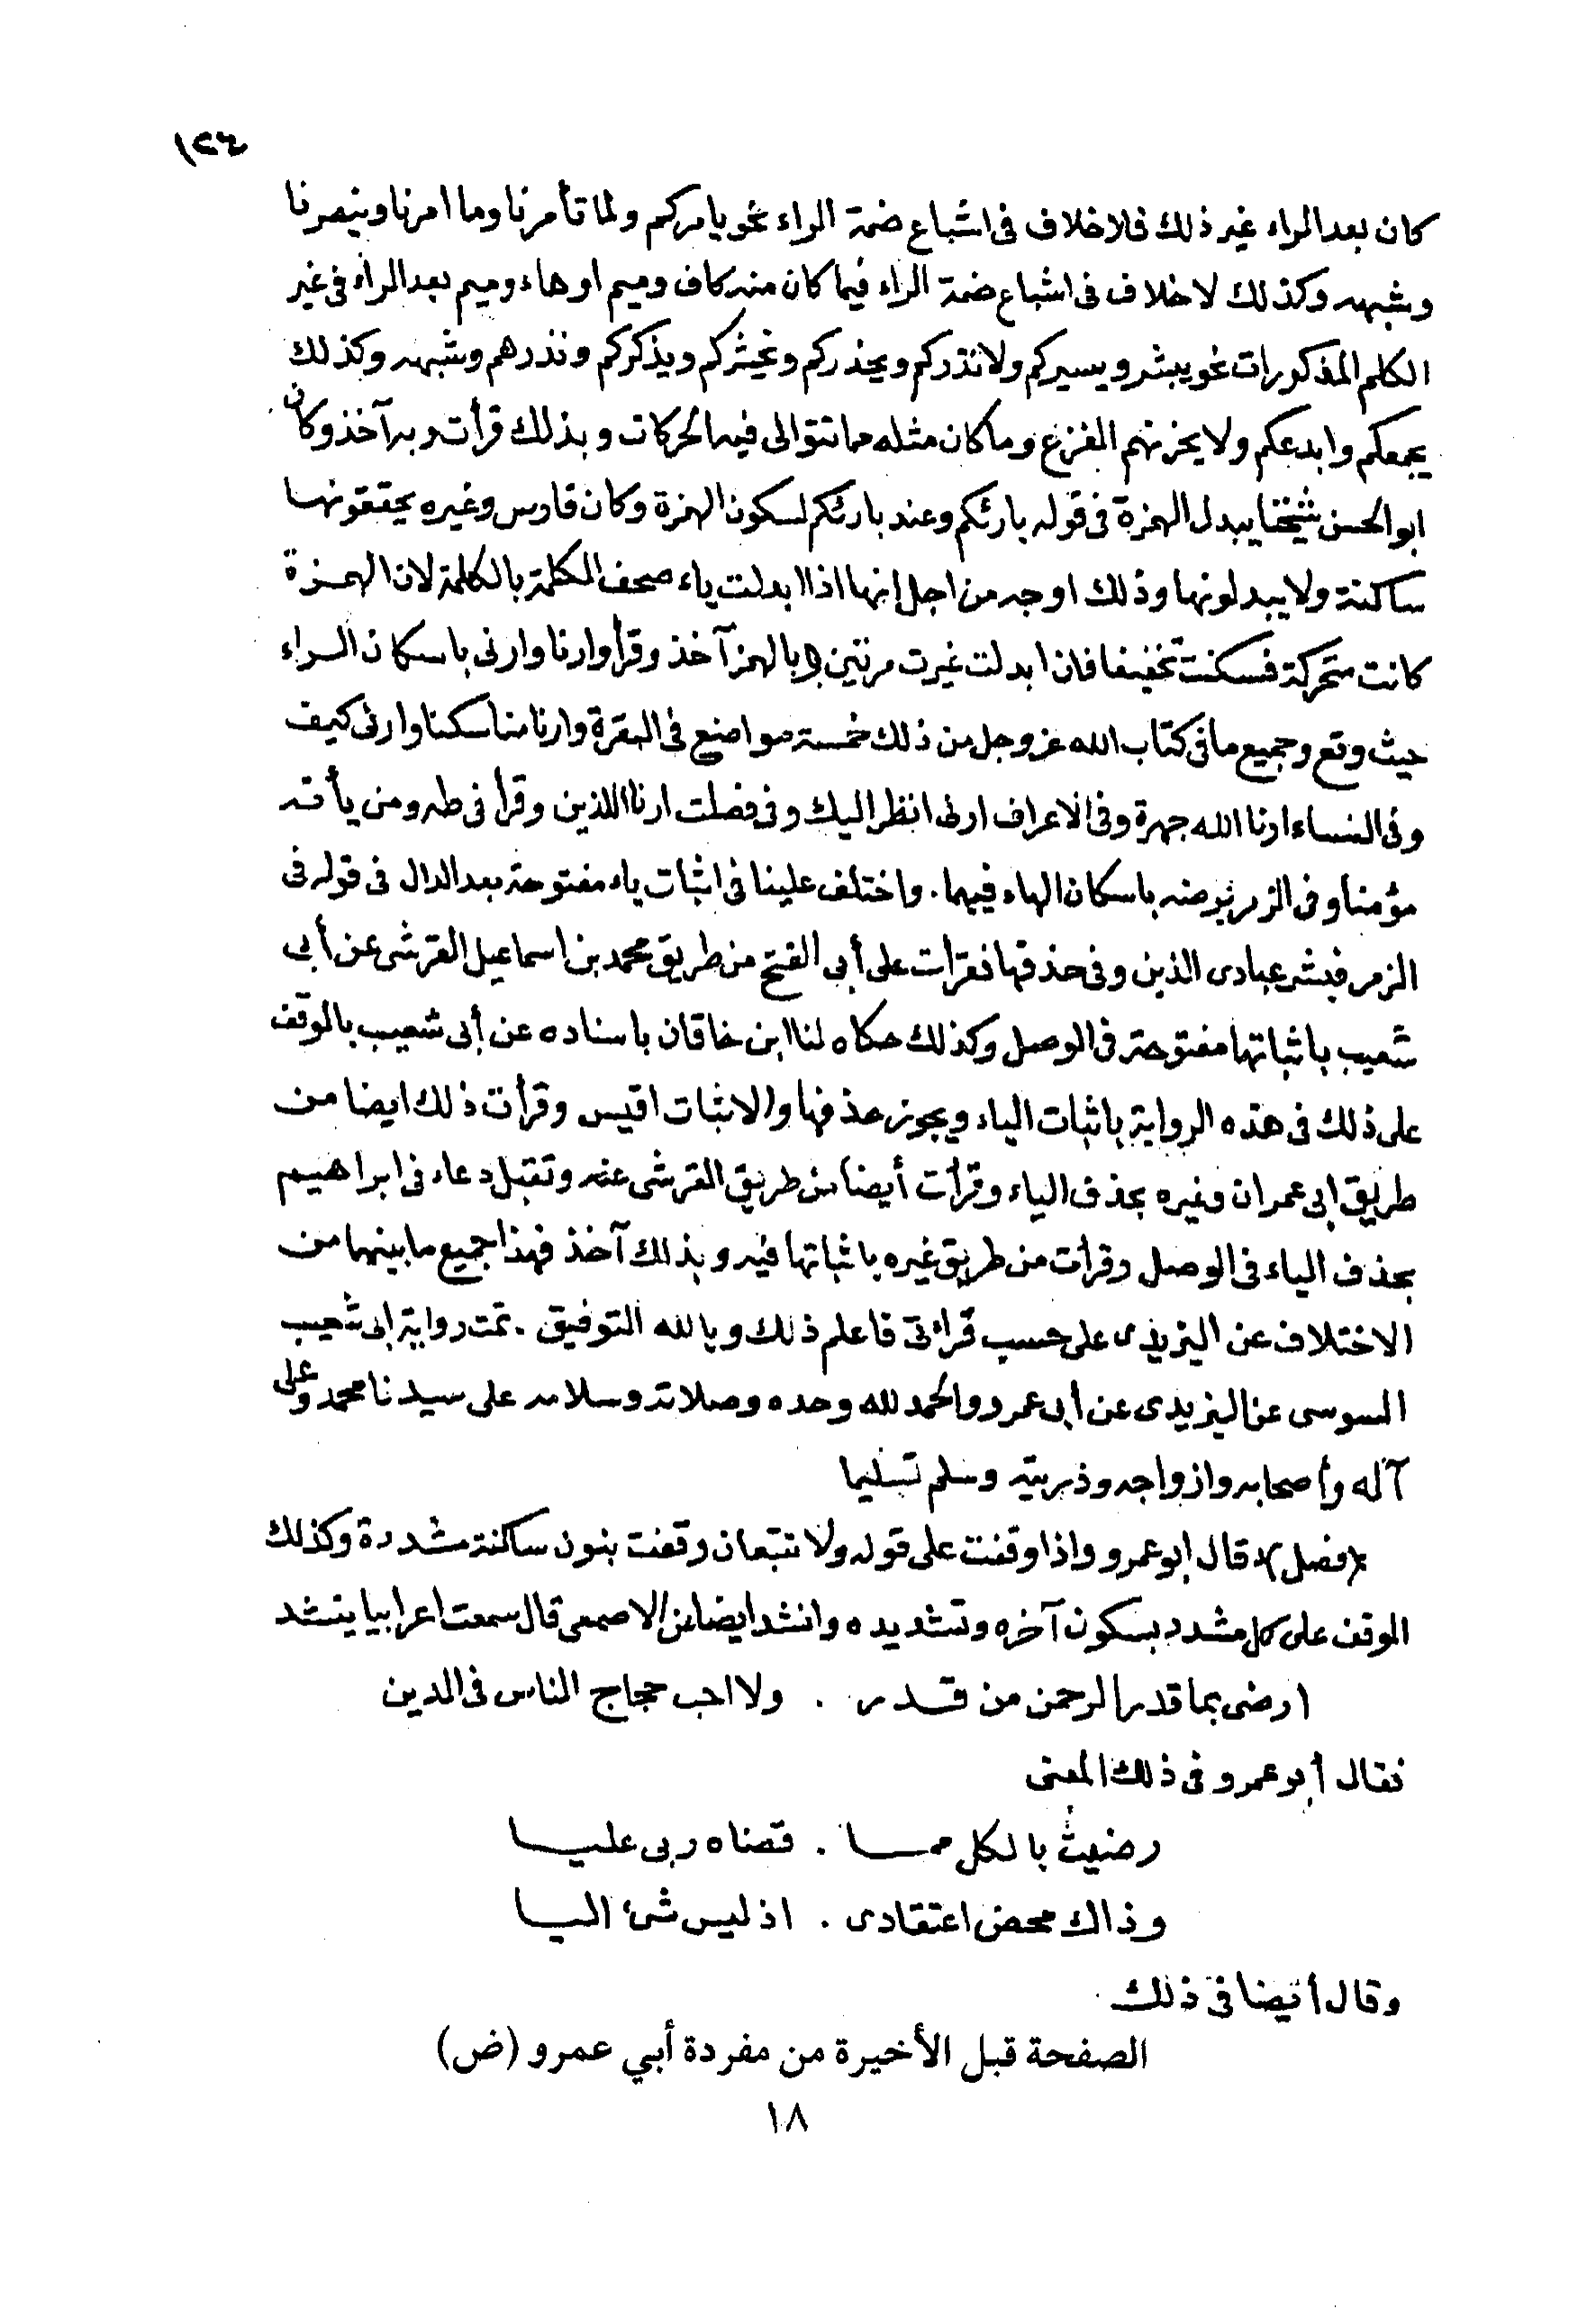 ١٢٤
كان بعد الراء غير ذلك فلا خلاف فى اشباع ضمة الراء نحو يامركم ولما تأمرنا وما امرنا وينصرنا
وشبهه وكذلك لا خلاف فى اشباع ضمة الراء فيما كان منه كاف وميم او هاء وميم بعد الراء فى غير
الكلم المذكورات نحو يبشر ويسيركم ولانذركم ويحذركم ونحشركم ويذكركم ونذرهم وشبهه وكذلك
يجمعكم وابدعكم ولا يحزنهم الفزع وما كان مثله مما تتوالى فيه الحركات وبذلك قرأت وبه آخذ وكان
ابو الحسن شيخنا يبدل الهمزة فى قوله بارئكم وعند بارئكم لسكون الهمزة وكان فارس وغيره يحققونها
ساكنة ولا يبدلونها وذلك اوجه من اجل انها اذا ابدلت ياء صحف الكلمة بالكلمة لان الهمزة
كانت متحركة فسكنت تخفيفا فان ابدلت غيرت مرتين وبالهمز آخذ وقرأ وارنا وارنى باسكان الراء
حيث وقع وجميع ما فى كتاب الله عز وجل من ذلك خمسة مواضع فى البقرة وارنا مناسكنا وارنى كيف
وفى النساء ارنا الله جهرة وفى الاعراف ارنى انظر اليك وفى فصلت ارنا اللذين وقرأ فى طه ومن يأته
مؤمنا وفى الزمر يرضه باسكان الهاء فيهما. واختلف علينا فى اثبات ياء مفتوحة بعد الدال فى قوله فى
الزمر فبشر عبادى الذين وفى حذفها فقرأت على أبى الفتح من طريق محمد بن اسماعيل القرشى عن أبى
شعيب باثباتها مفتوحة فى الوصل وكذلك حكاه لنا ابن خاقان باسناده عن أبى شعيب بالوقف
على ذلك فى هذه الرواية باثبات الياء ويجوز حذفها والاثبات اقيس وقرأت ذلك ايضا من
طريق ابى عمران وغيره بحذف الياء وقرأت أيضا من طريق القرشى عنه وتقبل دعاء فى ابراهيم
بحذف الياء فى الوصل وقرأت من طريق غيره باثباتها فيه وبذلك آخذ فهذا جميع ما بينهما من
الاختلاف عن اليزيدى على حسب قراءتى فاعلم ذلك وبالله التوفيق. تمت رواية ابى شعيب
السوسى عن اليزيدى عن أبى عمرو والحمد لله وحده وصلاته وسلامه على سيدنا محمد وعلى
آله وأصحابه وازواجه وذريته وسلم تسليما
(فصل) قال ابو عمرو واذا وقفت على قوله ولا تتبعان وقفت بنون ساكنة مشددة وكذلك
الوقف على كل مشدد بسكون آخره وتشديده وانشد ايضا عن الاصمعى قال سمعت اعرابيا ينشد
ارضى بما قدر الرحمن من قدر . ولا احب حجاج الناس فى الدين
فقال أبو عمرو فى ذلك المعنى
رضيت بالكل مما . قضاه ربى عليا
وذاك محض اعتقادى . اذ ليس شئ اليا
وقال أيضا فى ذلك
الصفحة قبل الأخيرة من مفردة أبي عمرو (ض)
١٨